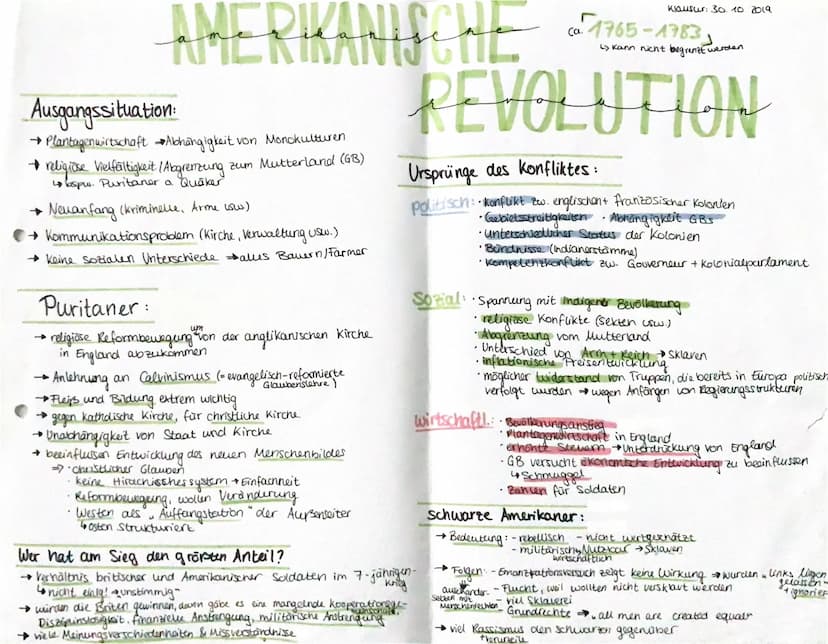 AMERIKANISCHE
amerikanische
REVOLUTION
revolution
Klausur: 30.10.2019
ca. 1765-1783
↳ kann nicht begrenzt werden
Ausgangssituation:
→ Plantagenwirtschaft → Abhängigkeit von Monokulturen
→ religiöse Vielfältigkeit/Abgrenzung zum Mutterland (GB)
↳ bspw. Puritaner o. Quäker
→ Neuanfang (Kriminelle, Arme usw)
→ Kommunikationsproblem (Kirche, Verwaltung usw.)
→ keine sozialen Unterschiede → alles Bauern/Farmer
Puritaner:
→ religiöse Reformbewegung um von der anglikanischen Kirche
in England abzukommen
→ Anlehnung an Calvinismus (= evangelisch-reformierte
Glaubenslehre)
→ Fleiß und Bildung extrem wichtig
→ gegen katholische Kirche, für christliche Kirche
→ Unabhängigkeit von Staat und Kirche
→ beeinflussen Entwicklung des neuen Menschenbildes
⇒ · christlicher Glauben
· keine Hirachisches system → Einfachheit
· Reformbewegung, wollen Veränderung
· Westen als "Auffangstation" der Außenseiter
↳ Osten strukturiert
Wer hat am Sieg den größten Anteil?
→ Verhältnis britischer und Amerikanischer Soldaten im 7-jährigen-
krieg
↳ nicht einig! "unstimmig"
→ würden die Briten gewinnen, dann gäbe es eine mangelnde Kooperations-
Disziplinlosigkeit, finanzielle Anstrengung, militärische Anstrengung
→ viele Meinungsverschiedenheiten & Missverständnisse
Ursprünge des Konfliktes:
politisch: · Konflikt zw. englischen + französischer Kolonien
· Gebietsstreitigkeiten · Abhängigkeit GBs
· Unterschiedlicher Status der Kolonien
· Bündnisse (Indianerstämme)
· Kompetenzkonflikt zw. Gouverneur + Kolonialparlament
Sozial: · Spannung mit indigener Bevölkerung
· religiöse Konflikte (Sekten usw.)
· Abgrenzung vom Mutterland
· Unterschied von Arm + Reich → Sklaven
· inflationische Preisentwicklung
· möglicher Widerstand von Truppen, die bereits in Europa politisch
verfolgt wurden → wegen Anfängen von Regierungsstrukturen
wirtschaftl.: · Bevölkerungsanstieg
· Plantagenwirtschaft in England
· erhöhte Steuern → Unterdrückung von England
· GB versucht ökonomische Entwicklung zu beeinflussen
↳ Schmuggel
· Zahlen für Soldaten
schwarze Amerikaner:
→ Bedeutung: - rebellisch - nicht wertgeschätzt
- militärisch, Nutzbar → Sklaven
wirtschaftlich
→ Folgen: - Emanzipationsversuch zeigt keine Wirkung → wurden "links liegen
gelassen"
+ ignoriert
- Flucht, weil wollten nicht verkauft werden
- viel Sklaverei
- Grundrechte → "all men are created equal"
→ viel Rassismus den schwarzen gegenüber